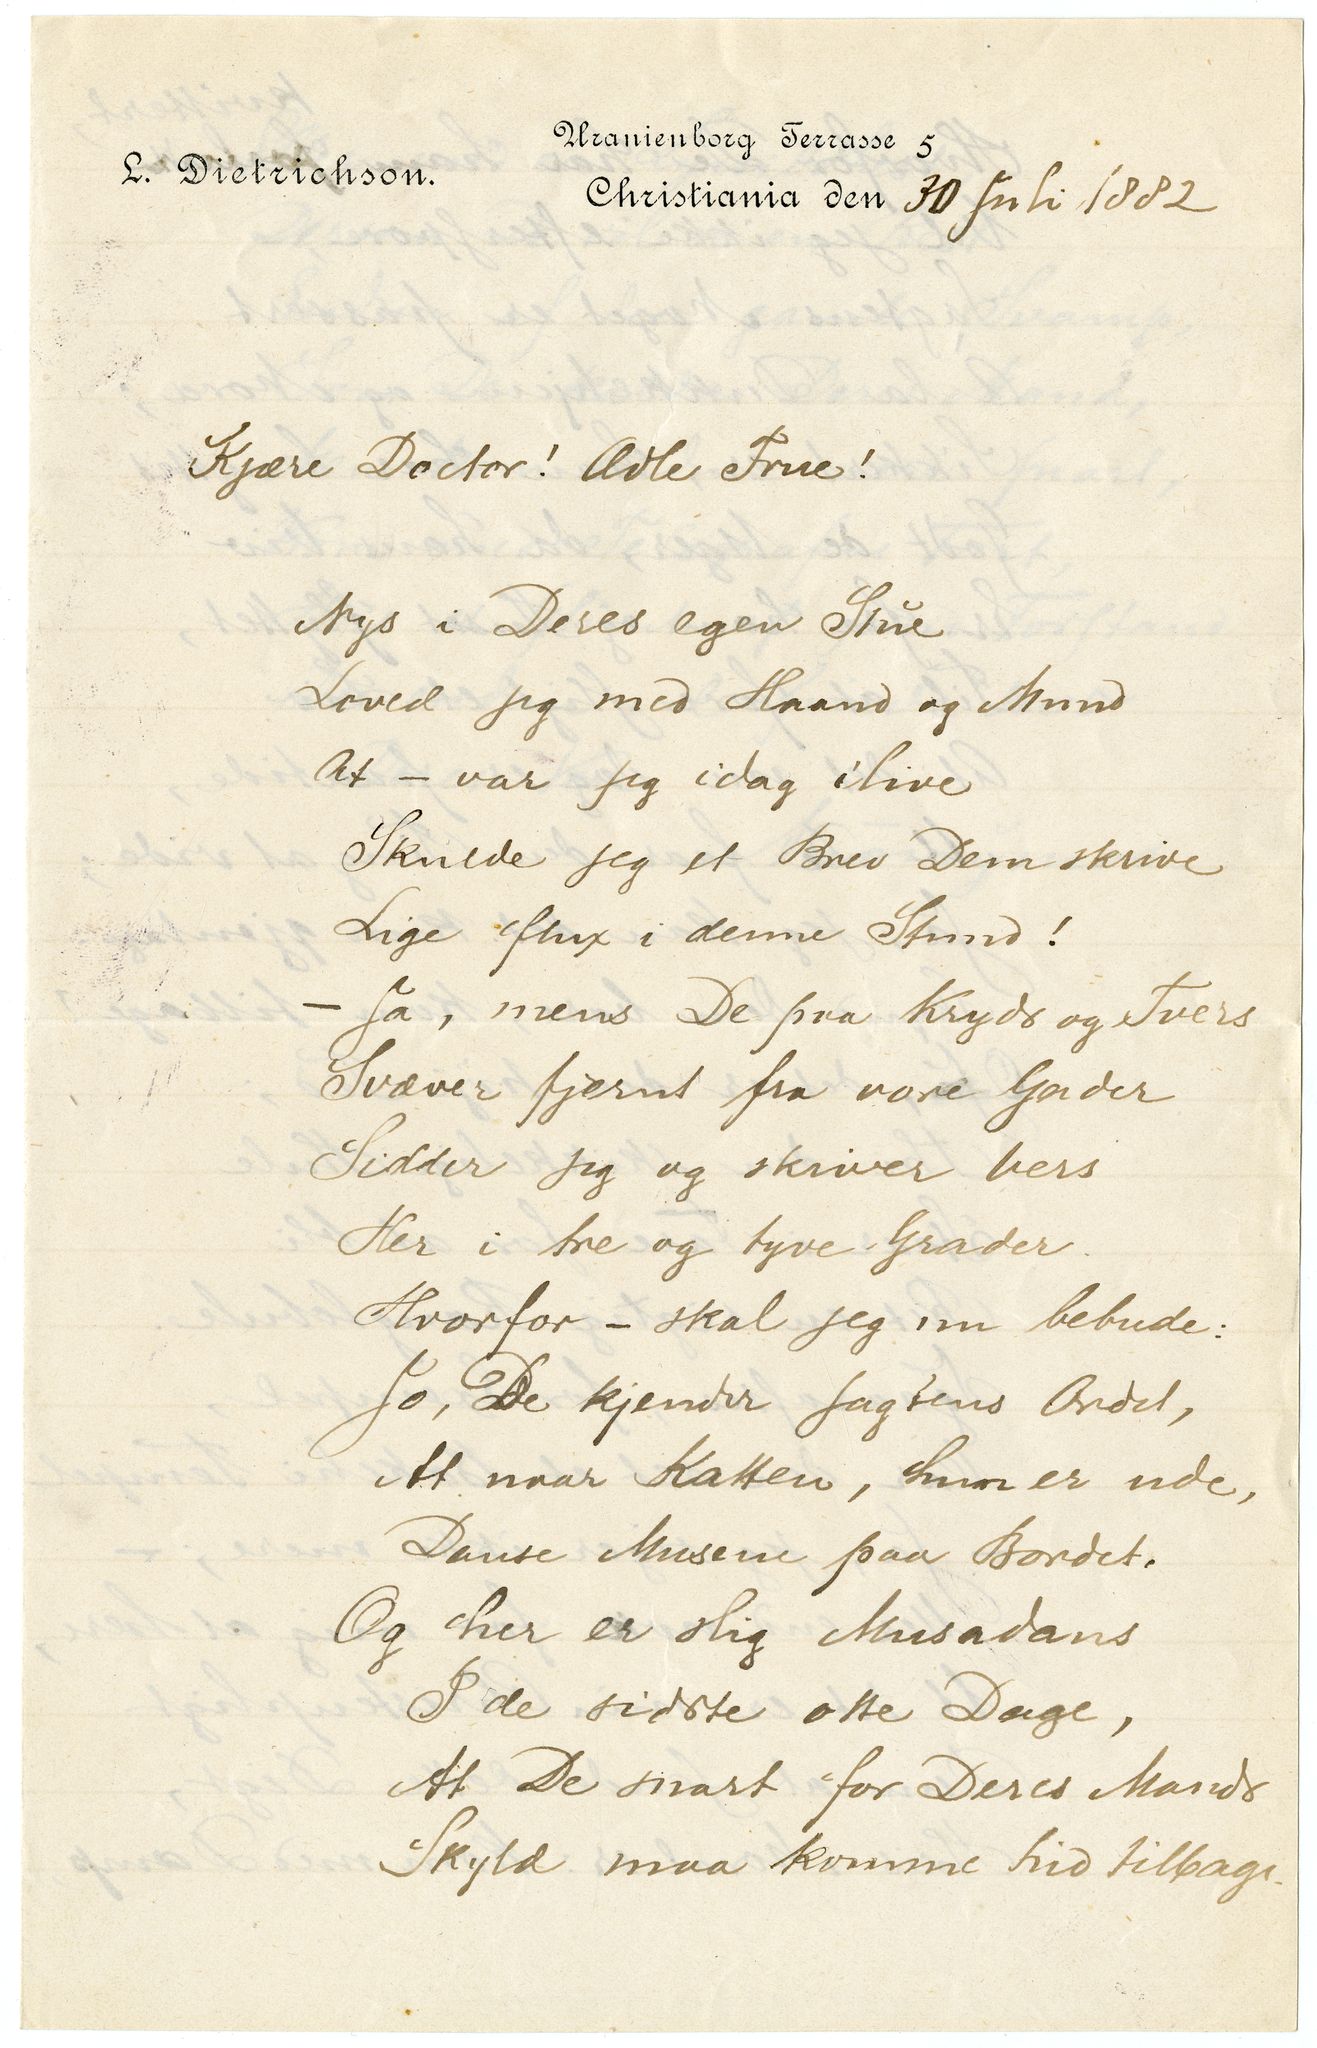 L. Dietrichson.
Uranienborg Terrasse 5
Christiania den 30 Juli 1882
Kjære Doctor! Ædle Frue!
Nys i Deres egen Stue
Loved jeg med Haand og Mund
At – var jeg idag ilive
Skulde jeg et Brev Dem skrive
Lige flux i denne Stund!
– Ja, mens De paa Kryds og Tvers
Svæver fjernt fra vore Gader
Sidder jeg og skriver Vers
Her i tre og tyve Grader.
Hvorfor – skal jeg nu bebude:
Jo, De kjender sagtens Ordet,
At naar Katten, hun er ude,
Danse Musene paa Bordet.
Og her er slig Musadans
I de sidste otte Dage,
At De snart for Deres Mands
Skyld maa komme hid tilbage.